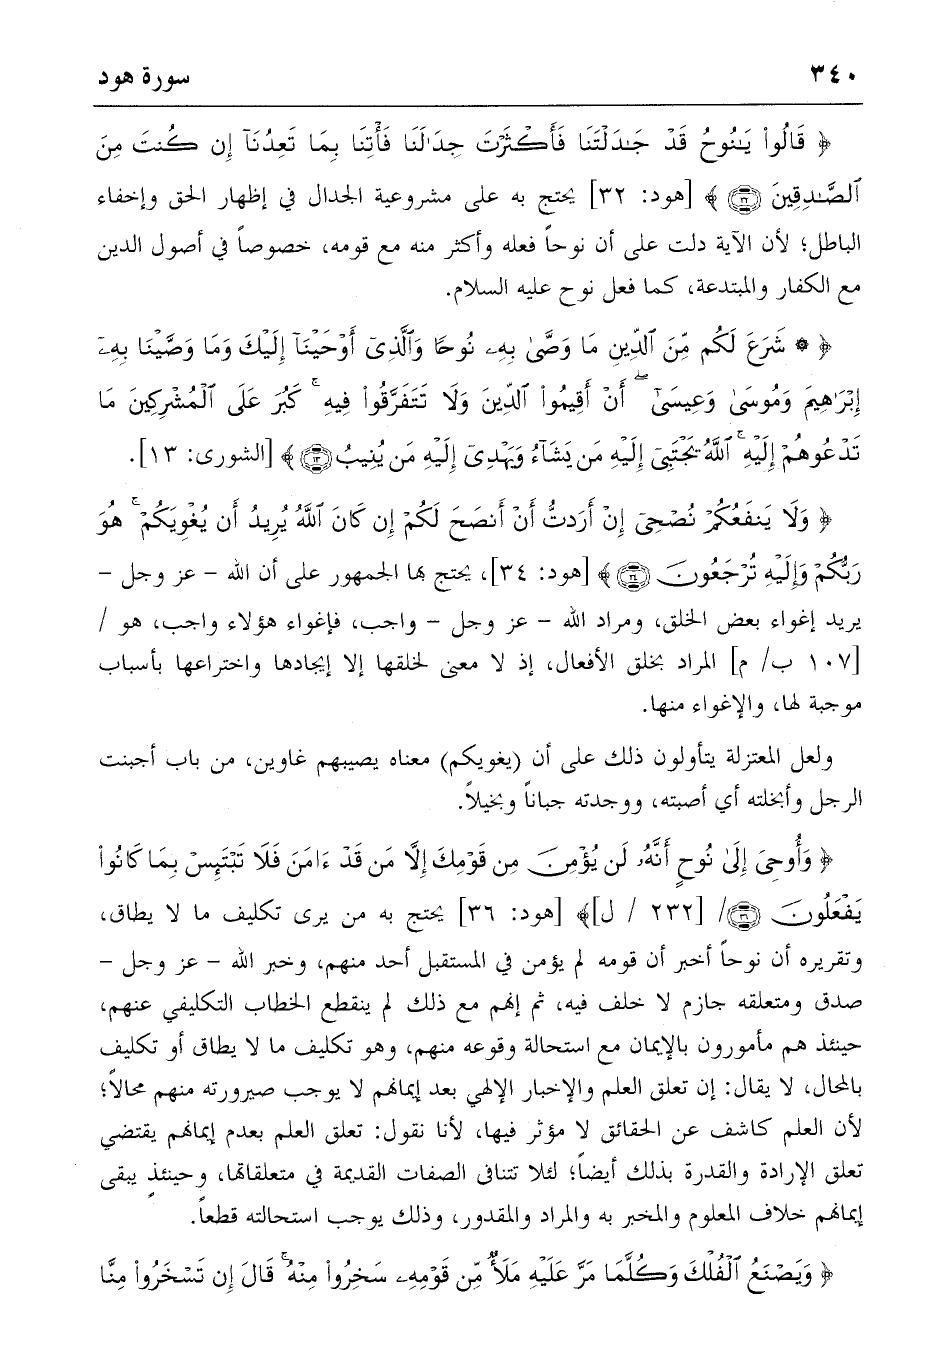 ٣٤٠ سورة هود
﴿ قَالُوا۟ يَـٰنُوحُ قَدْ جَـٰدَلْتَنَا فَأَكْثَرْتَ جِدَٰلَنَا فَأْتِنَا بِمَا تَعِدُنَآ إِن كُنتَ مِنَ
ٱلصَّـٰدِقِينَ ﴾ [هود: ٣٢] يحتج به على مشروعية الجدال في إظهار الحق وإخفاء
الباطل؛ لأن الآية دلت على أن نوحاً فعله وأكثر منه مع قومه، خصوصاً في أصول الدين
مع الكفار والمبتدعة، كما فعل نوح عليه السلام.
﴿ ۞ شَرَعَ لَكُم مِّنَ ٱلدِّينِ مَا وَصَّىٰ بِهِۦ نُوحًا وَٱلَّذِىٓ أَوْحَيْنَآ إِلَيْكَ وَمَا وَصَّيْنَا بِهِۦٓ
إِبْرَٰهِيمَ وَمُوسَىٰ وَعِيسَىٰٓ ۖ أَنْ أَقِيمُوا۟ ٱلدِّينَ وَلَا تَتَفَرَّقُوا۟ فِيهِ ۚ كَبُرَ عَلَى ٱلْمُشْرِكِينَ مَا
تَدْعُوهُمْ إِلَيْهِ ۚ ٱللَّهُ يَجْتَبِىٓ إِلَيْهِ مَن يَشَآءُ وَيَهْدِىٓ إِلَيْهِ مَن يُنِيبُ ١٣ ﴾ [الشورى: ١٣].
﴿ وَلَا يَنفَعُكُمْ نُصْحِىٓ إِنْ أَرَدتُّ أَنْ أَنصَحَ لَكُمْ إِن كَانَ ٱللَّهُ يُرِيدُ أَن يُغْوِيَكُمْ ۚ هُوَ
رَبُّكُمْ وَإِلَيْهِ تُرْجَعُونَ ﴾ [هود: ٣٤]، يحتج بها الجمهور على أن الله - عز وجل -
يريد إغواء بعض الخلق، ومراد الله - عز وجل - واجب، فإغواء هؤلاء واجب، هو /
[١٠٧ ب/ م] المراد بخلق الأفعال، إذ لا معنى لخلقها إلا إيجادها واختراعها بأسباب
موجبة لها، والإغواء منها.
ولعل المعتزلة يتأولون ذلك على أن (يغويكم) معناه يصيبهم غاوين، من باب أجبنت
الرجل وأبخلته أي أصبته، ووجدته جباناً وبخيلاً.
﴿ وَأُوحِىَ إِلَىٰ نُوحٍ أَنَّهُۥ لَن يُؤْمِنَ مِن قَوْمِكَ إِلَّا مَن قَدْ ءَامَنَ فَلَا تَبْتَئِسْ بِمَا كَانُوا۟
يَفْعَلُونَ ٣٦/ [٢٣٢ / ل]﴾ [هود: ٣٦] يحتج به من يرى تكليف ما لا يطاق،
وتقريره أن نوحاً أخبر أن قومه لم يؤمن في المستقبل أحد منهم، وخبر الله - عز وجل -
صدق ومتعلقه جازم لا خلف فيه، ثم إنهم مع ذلك لم ينقطع الخطاب التكليفي عنهم،
حينئذ هم مأمورون بالإيمان مع استحالة وقوعه منهم، وهو تكليف ما لا يطاق أو تكليف
بالمحال، لا يقال: إن تعلق العلم والإخبار الإلهي بعد إيمانهم لا يوجب صيرورته منهم محالاً؛
لأن العلم كاشف عن الحقائق لا مؤثر فيها، لأنا نقول: تعلق العلم بعدم إيمانهم يقتضي
تعلق الإرادة والقدرة بذلك أيضاً؛ لئلا تتنافى الصفات القديمة في متعلقاتها، وحينئذٍ يبقى
إيمانهم خلاف المعلوم والمخبر به والمراد والمقدور، وذلك يوجب استحالته قطعاً.
﴿ وَيَصْنَعُ ٱلْفُلْكَ وَكُلَّمَا مَرَّ عَلَيْهِ مَلَأٌ مِّن قَوْمِهِۦ سَخِرُوا۟ مِنْهُ ۚ قَالَ إِن تَسْخَرُوا۟ مِنَّا